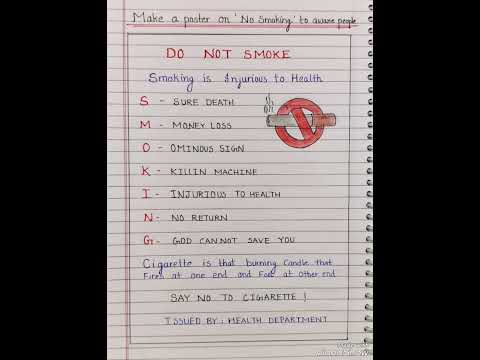 Make a poster on 'No Smoking' to aware people
DO NOT SMOKE
Smoking is Injurious to Health
S - SURE DEATH
M - MONEY LOSS
O - OMINOUS SIGN
K - KILLIN MACHINE
I - INJURIOUS TO HEALTH
N - NO RETURN
G - GOD CANNOT SAVE YOU
Cigarette is that burning Candle that
Fires at one end and Fool at other end
SAY NO TO CIGARETTE !
ISSUED BY : HEALTH DEPARTMENT